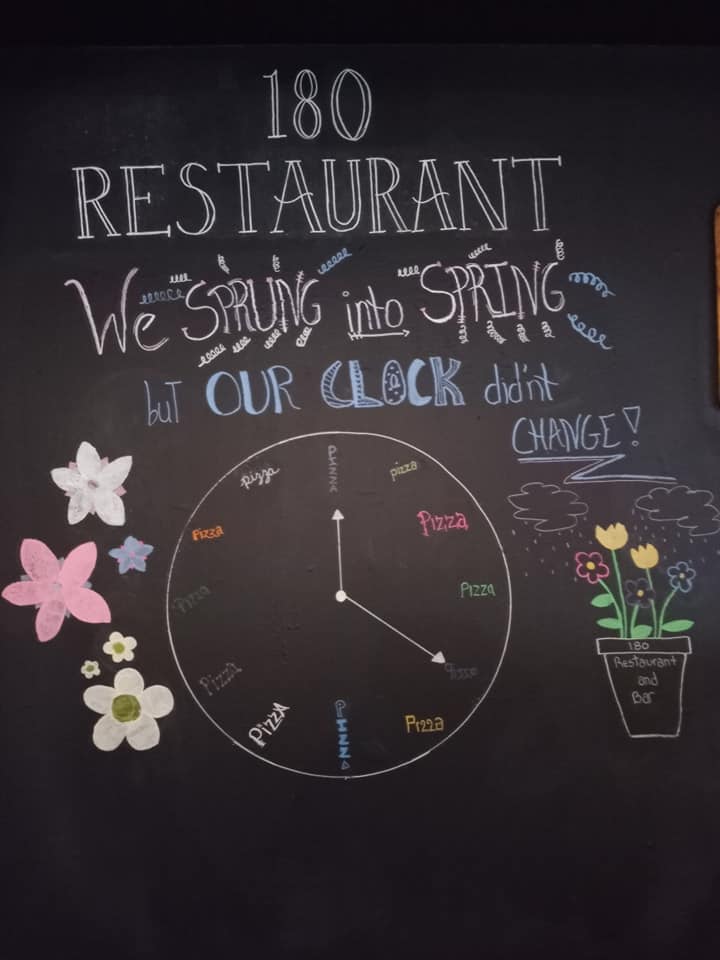 180
RESTAURANT
We SPRUNG into SPRING
but OUR CLOCK didn't
CHANGE!
pizza
pizza
Pizza
Pizza
Pizza
Pizza
Pizza
Pizza
Pizza
Pizza
PIZZA
Pizza
180
Restaurant
and
Bar